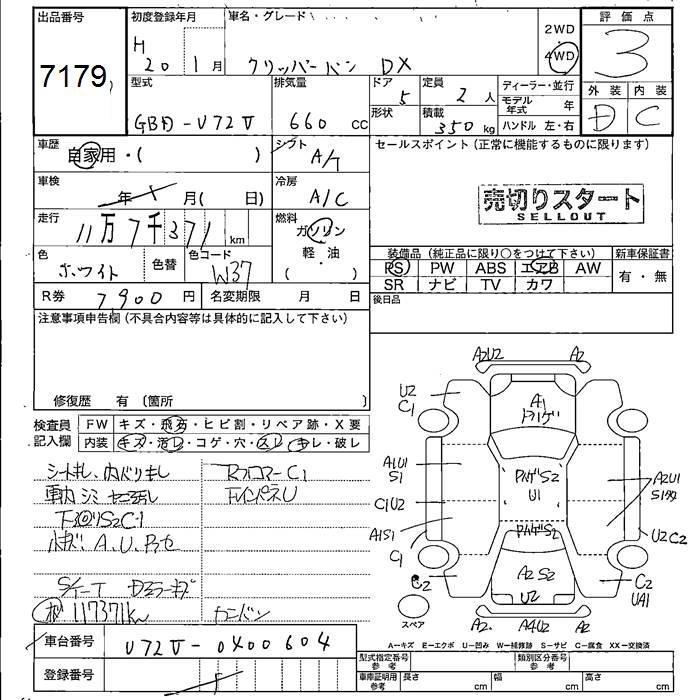 出品番号
7179
初度登録年月
H 20 1月
車名・グレード
クリッパーバン DX
2WD
4WD
評価点
3
外装 内装
D C
型式
GBD-U72V
排気量
660 cc
ドア 5
形状
定員 2人
積載 350 kg
ディーラー・並行
モデル年式 年
ハンドル 左・右
車歴
自家用・( )
シフト
A/T
セールスポイント(正常に機能するものに限ります)
車検
年 月( 日)
冷房
A/C
売切りスタート
SELLOUT
走行
11万7千371 km
燃料
ガソリン
軽・油
( )
色
ホワイト
色替
色コード
W37
装備品(純正品に限り○をつけて下さい)
新車保証書
PS PW ABS エアB AW
SR ナビ TV カワ
有・無
R券 7900円 名変期限 月 日
後日品
注意事項申告欄(不具合内容等は具体的に記入して下さい)
修復歴 有〔箇所 〕
検査員記入欄
FW キズ・飛石・ヒビ割・リペア跡・X要
内装 キズ・汚レ・コゲ・穴・スレ・キレ・破レ
シートキレ、内バリキレ
RフロアーC1
FインパネU
小キズ、A.U.アセ
117371km
車台番号
U72V-0400604
登録番号
A2U2 A2
U2
C1
A1
A1U1
S1
S2
U1
A2U1
C1U2
A1S1
C1
S2
U2C2
C2
A2S2
U2
C2
UA1
スペア
A2 A4U2 A2
A=キズ E=エクボ U=凹み W=補修跡 S=サビ C=腐食 XX=交換済
型式指定番号 参考
類別区分番号 参考
車庫証明用 参考 長さ cm 幅 cm 高さ cm